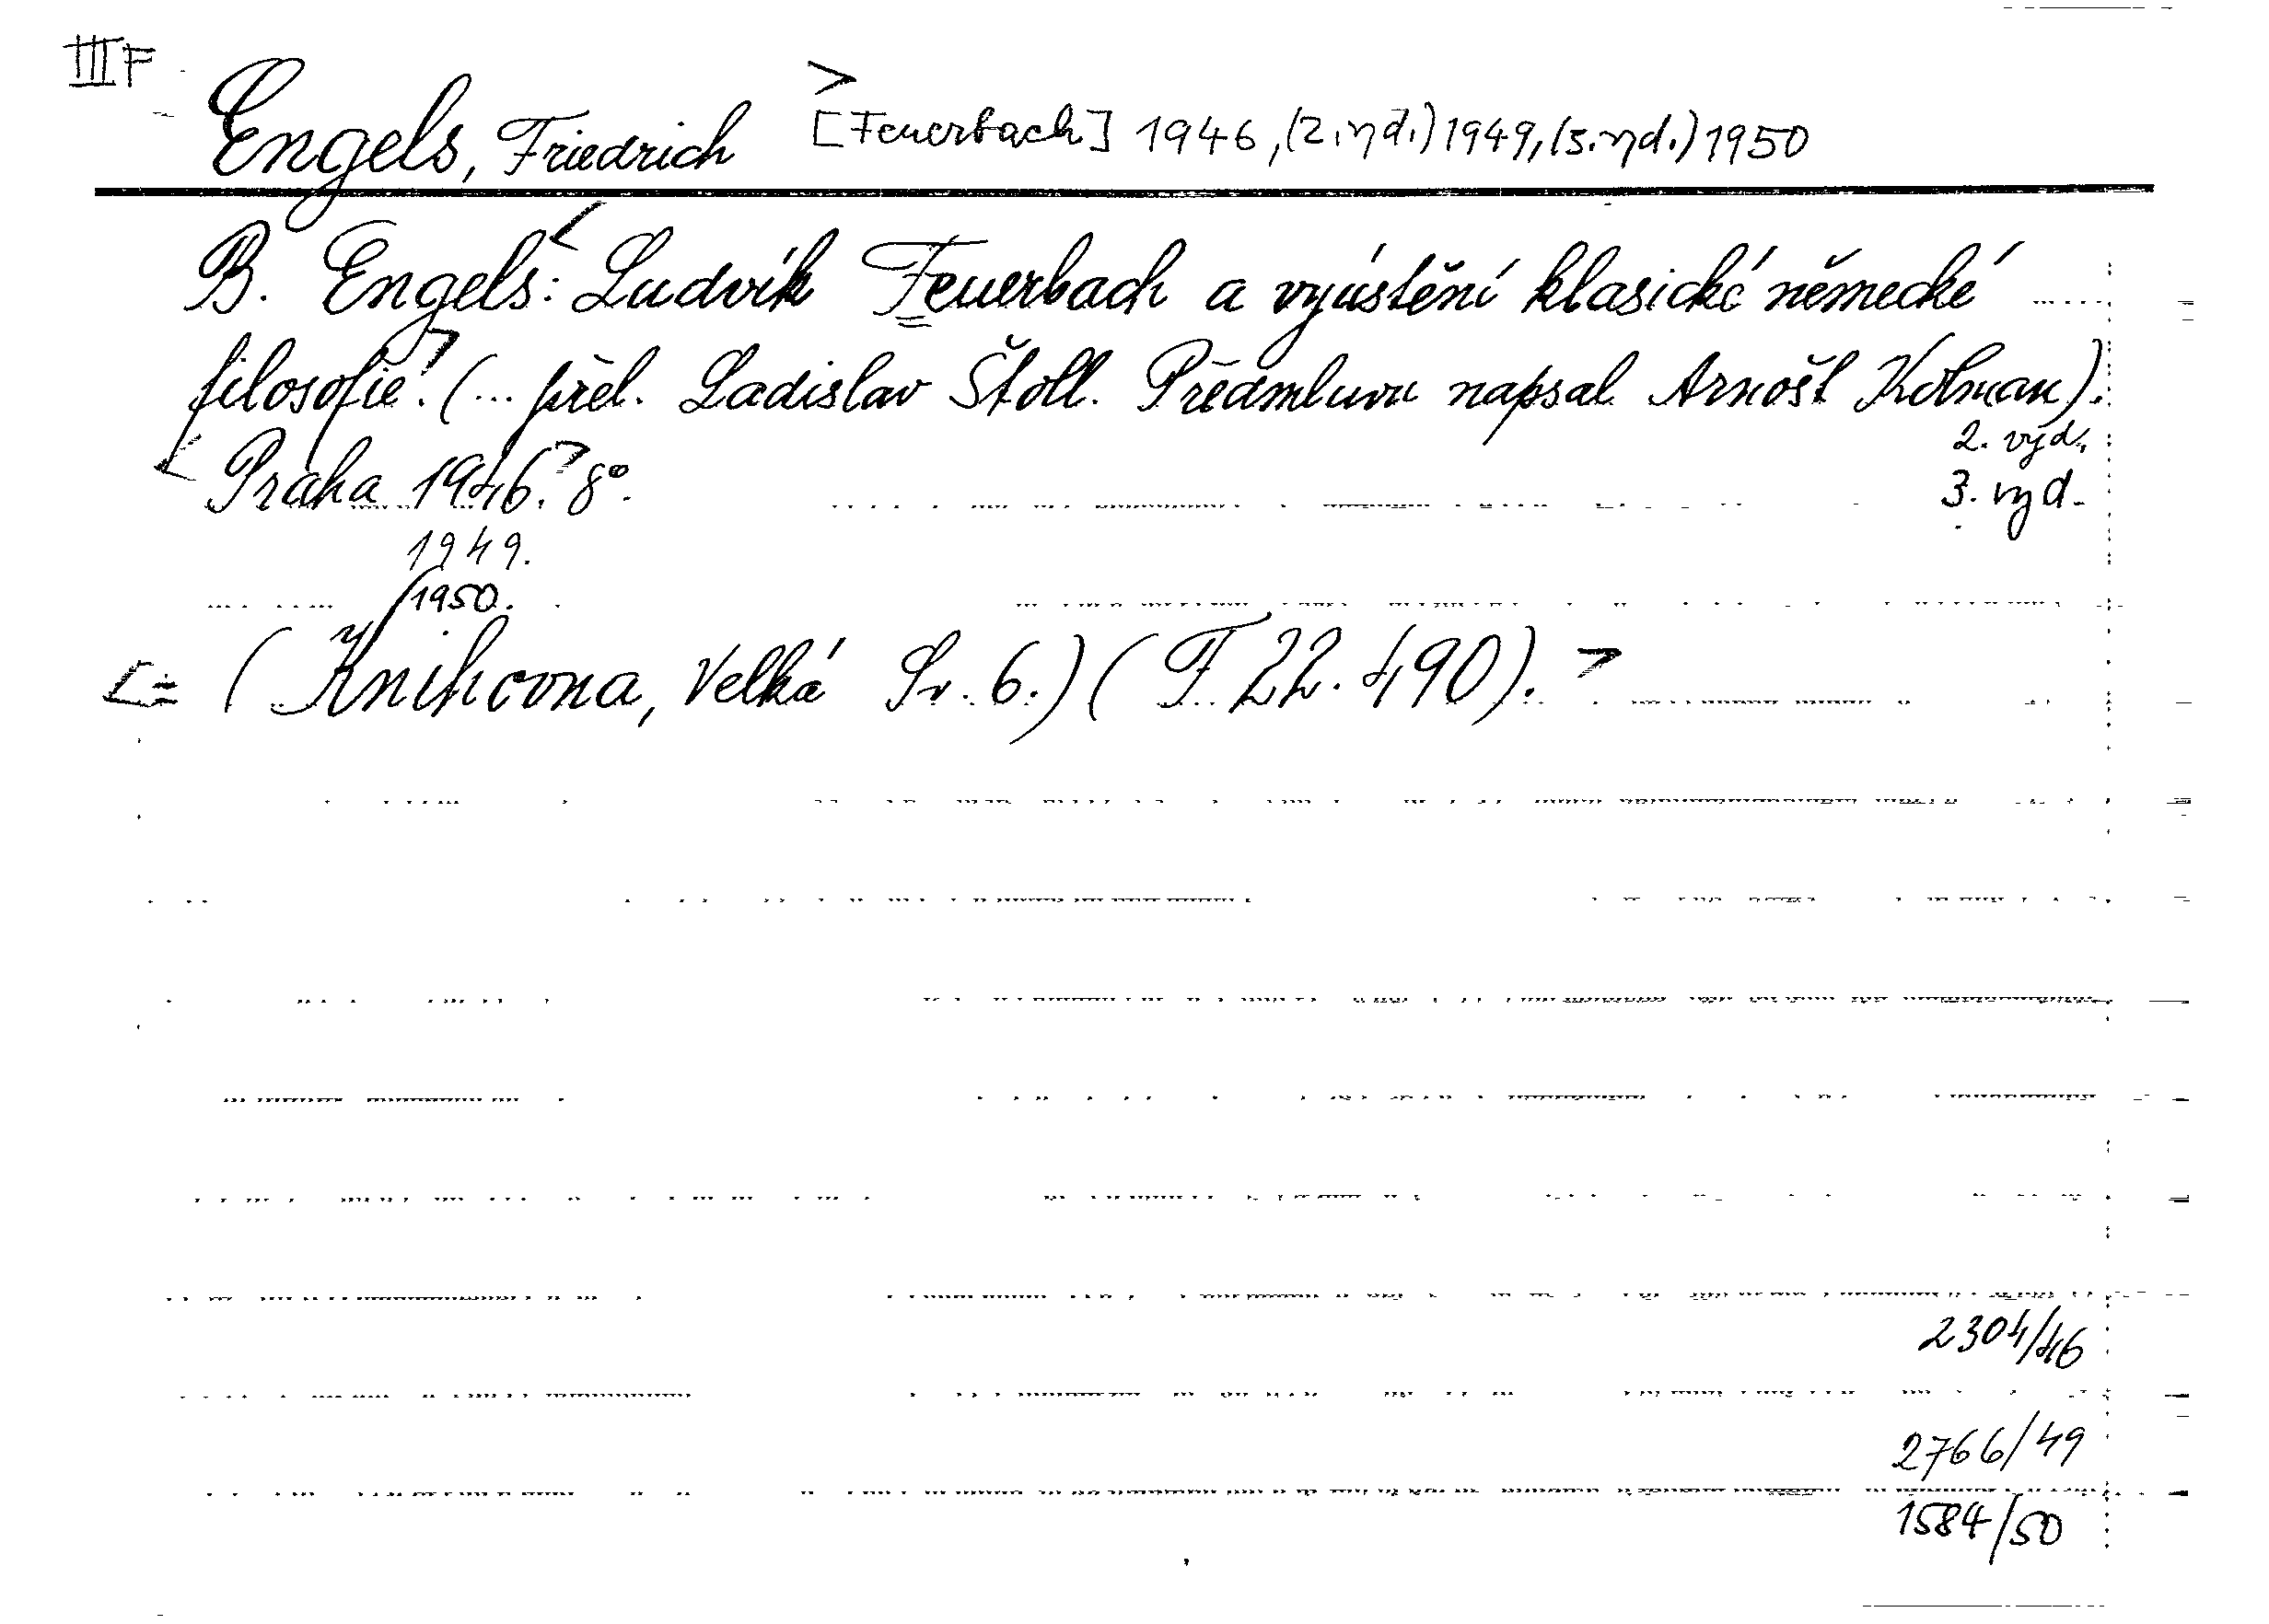 III F
Engels, Friedrich [Feuerbach] 1946, (2. vyd.) 1949, (3. vyd.) 1950
B. Engels: Ludvík Feuerbach a vyústění klasické německé
filosofie. (... přel. Ladislav Štoll. Předmluvu napsal Arnošt Kolman).
2. vyd.
Praha 1946. 8°. 3. vyd.
1949.
1950.
(Knihovna, Velká Sv. 6.) (F 22.490).
2304/46
2766/49
1584/50